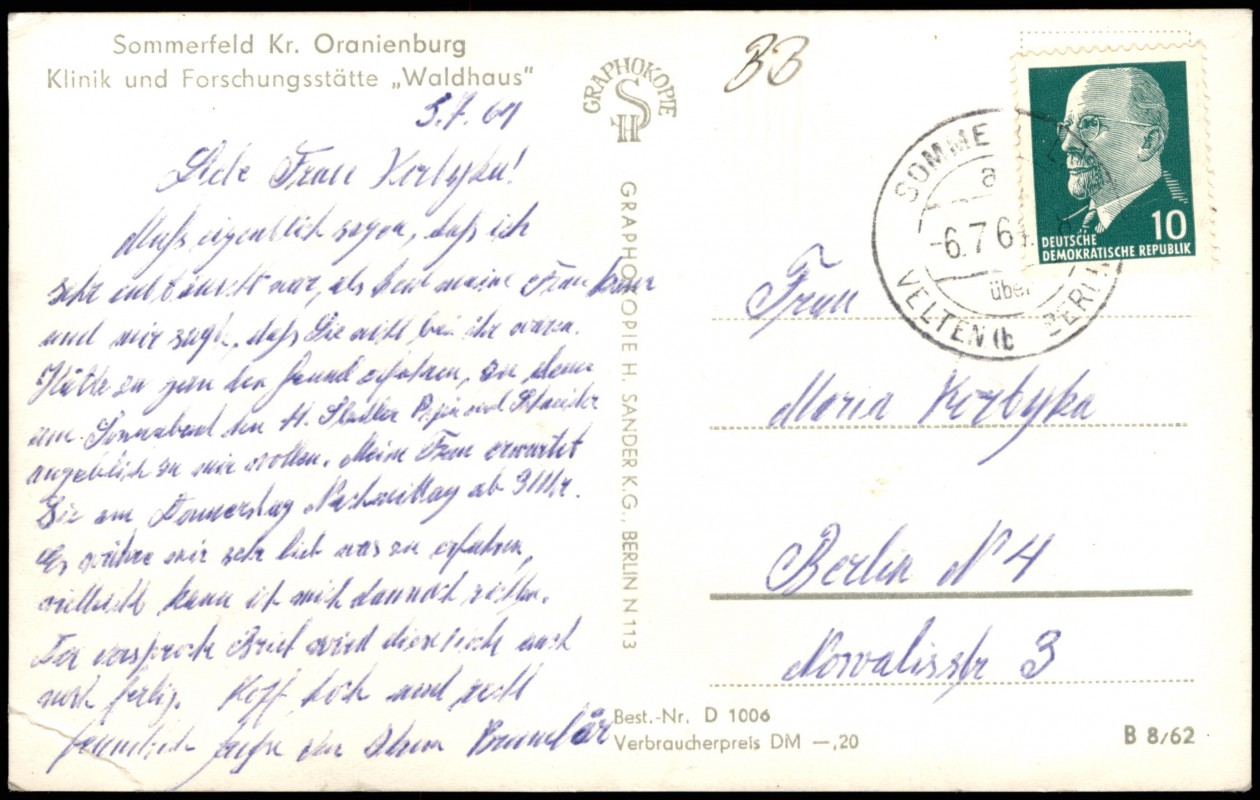 Sommerfeld Kr. Oranienburg
Klinik und Forschungsstätte „Waldhaus"
5.7.61
Liebe Frau Korbyka!
Muß eigentlich sagen, daß ich
sehr enttäuscht war, als heut meine Frau kam
und mir sagte, daß Sie nicht bei ihr waren.
Hätte zu gern den Grund erfahren, zu dem
am Sonnabend den und Schneider
angeblich zu mir wollen. Meine Frau erwartet
Sie am Donnerstag Nachmittag ab 3 Uhr.
Es währe mir sehr lieb was zu erfahren,
vielleicht kann ich mich dannach richten.
Der versproch. Brief wird diese Woche auch
noch fertig. und recht
Grüße von Ihrem
GRAPHOKOPIE
SH
GRAPHOKOPIE H. SANDER K.G., BERLIN N 113
BB
SOMME
a
-6.7.61
über
VELTEN (b BERLIN
10
DEUTSCHE
DEMOKRATISCHE REPUBLIK
Frau
Maria Korbyka
Berlin N 4
Novalisstr 3
Best.-Nr. D 1006
Verbraucherpreis DM —,20
B 8/62